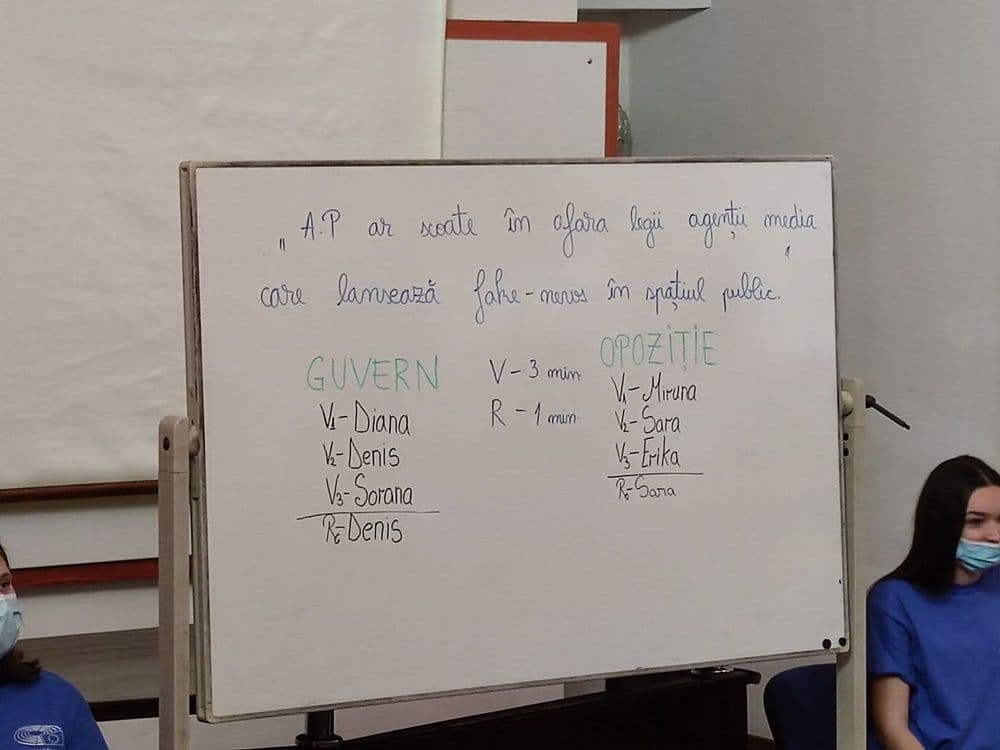 „ A.P ar scoate în afara legii agenții media
care lansează fake-news în spațiul public. "
GUVERN
V1-Diana
V2-Denis
V3-Sorana
R6-Denis
V-3 min
R-1 min.
OPOZIȚIE
V1-Miruna
V2-Sara
V3-Erika
R6-Sara